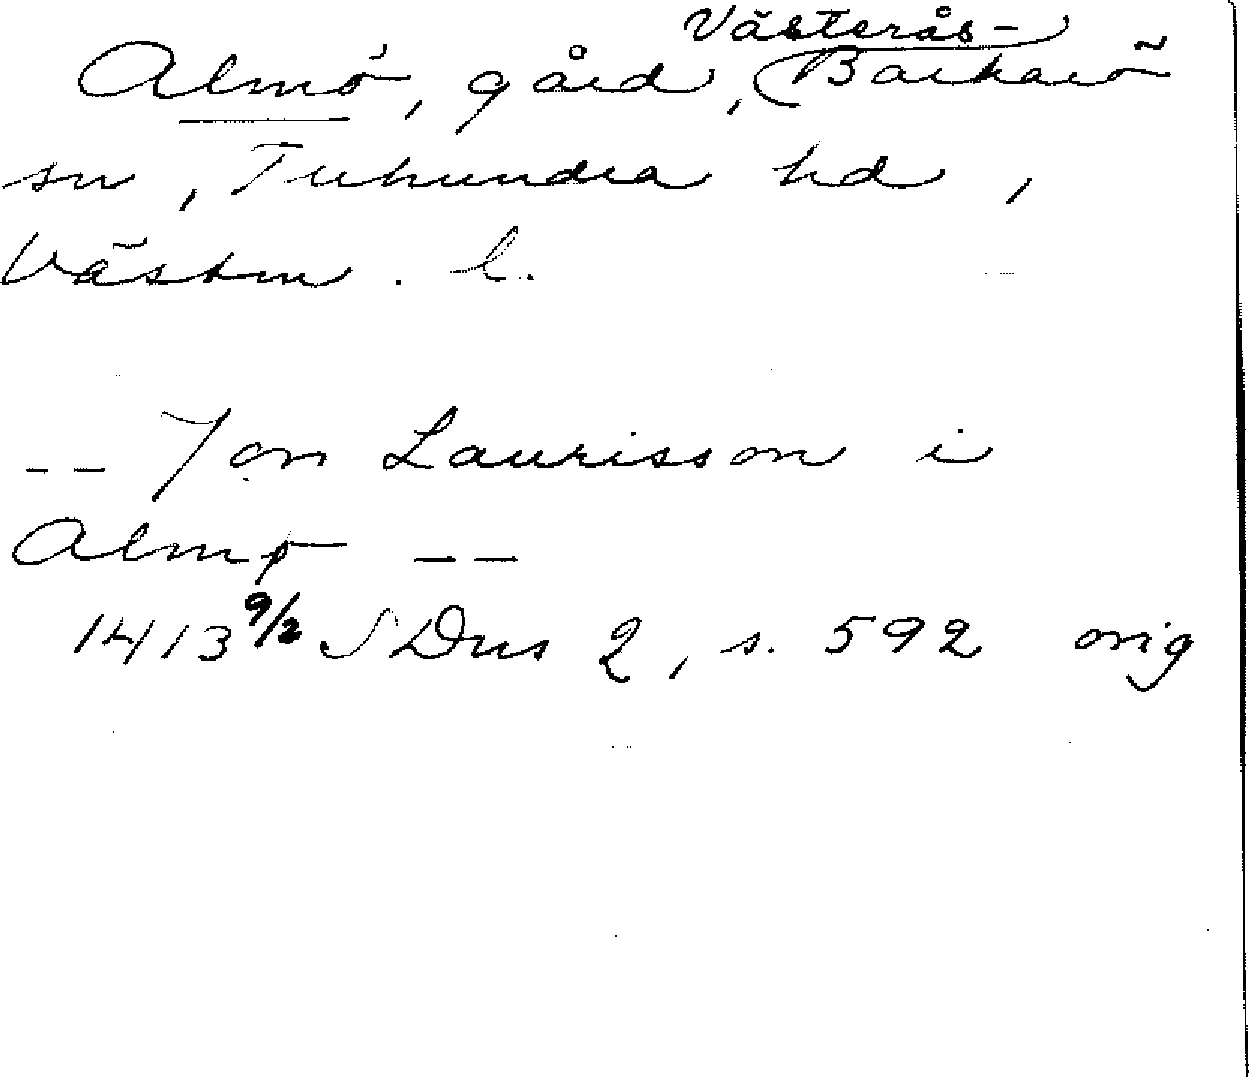 Västerås-
Almö, gård, Barkarö
sn, Tuhundra hd,
Västm. l.
-- Jon Laurisson i
Almø --
1413 9/2 SDns 2, s. 592 orig